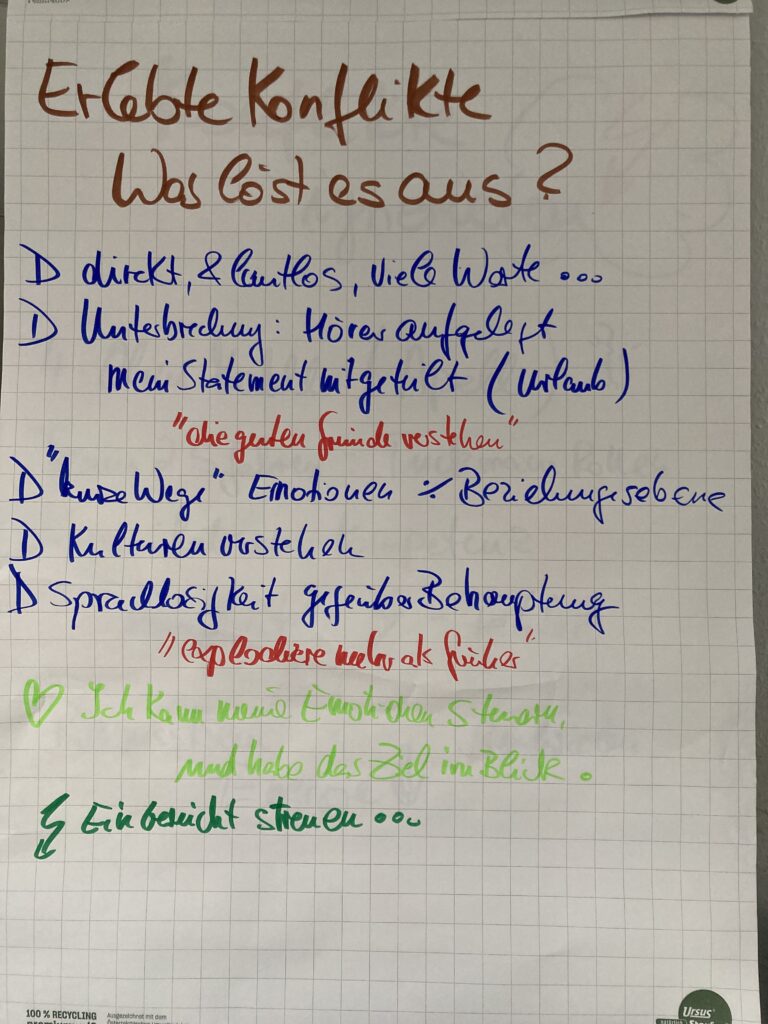 Erlebte Konflikte
Was löst es aus?
direkt, & lautlos, viele Worte ...
Unterbrechung: Hörer aufgelegt
mein Statement mitgeteilt (Urlaub)
"die guten Freunde verstehen"
"kurze Wege" Emotionen ⁒ Beziehungsebene
Kulturen verstehen
Sprachlosigkeit gegenüber Behauptung
"explodiere mehr als früher"
♡ Ich kann meine Emotionen steuern,
und habe das Ziel im Blick.
streuen ...
100 % RECYCLING
Ausgezeichnet mit dem
Ursus